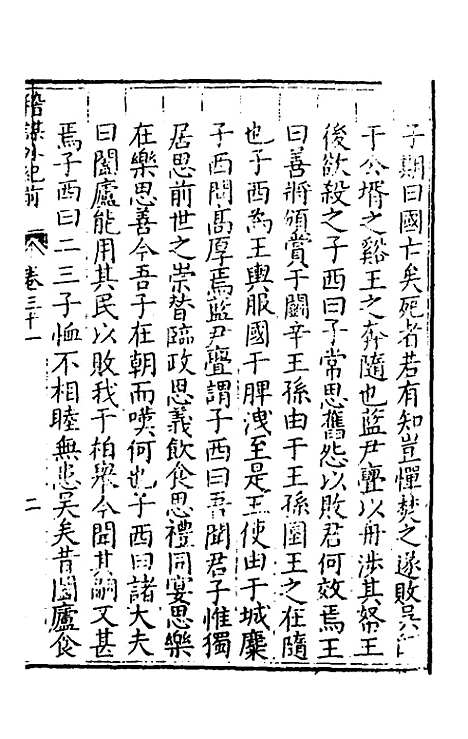 子期曰國亡矣死者若有知豈憚焚之遂敗吳師
于公壻之谿王之奔隨也藍尹亹以舟涉其帑王
後欲殺之子西曰子常思舊怨以敗君何效焉王
曰善將頒賞于鬬辛王孫由于王孫圉王之在隨
也子西為王輿服國于脾洩至是王使由于城麇
子西問高厚焉藍尹亹謂子西曰吾聞君子惟獨
居思前世之崇替臨政思義飲食思禮同宴思樂
在樂思善今吾子在朝而嘆何也子西曰諸大夫
曰闔廬能用其民以敗我于柏舉今聞其嗣又甚
焉子西曰二三子恤不相睦無患吳矣昔闔廬食
卷三十一
二